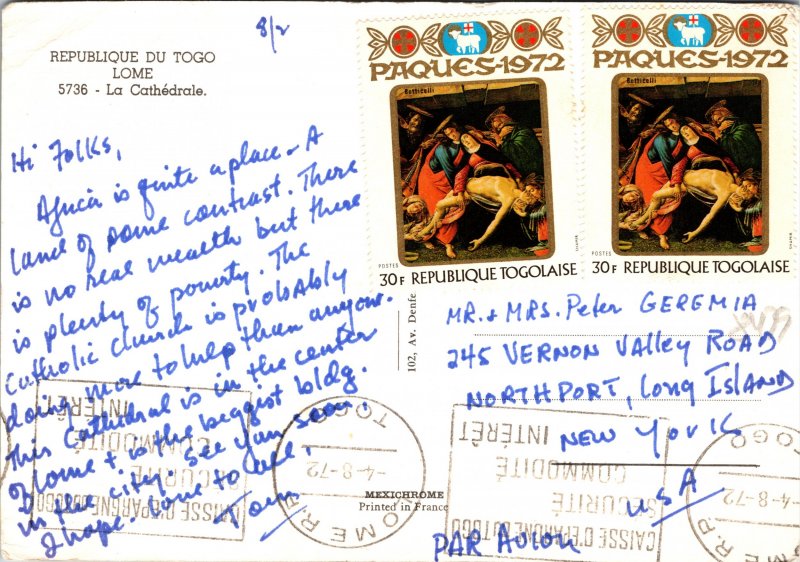 8/2
REPUBLIQUE DU TOGO
LOME
5736 - La Cathédrale.
Hi Folks,
Africa is quite a place - A
land of some contrast. There
is no real wealth but there
is plenty of poverty. The
Catholic church is probably
doing more to help than anyone.
This Cathedral is in the center
of Lome + is the biggest bldg.
in the city. See you soon.
I hope. Love to all,
Tom
PAQUES-1972
Botticelli
POSTES
30F REPUBLIQUE TOGOLAISE
PAQUES-1972
Botticelli
POSTES
30F REPUBLIQUE TOGOLAISE
102, Av. Denfe
MR. + MRS. Peter GEREMIA
245 VERNON Valley ROAD
NORTHPORT, Long Island
NEW YORK
USA
PAR AVION
MEXICHROME
Printed in France
CAISSE D'EPARGNE DU TOGO
SECURITÉ
COMMODITÉ
INTÉRÊT
LOME R.P.
-4-8-72
TOGO
CAISSE D'EPARGNE DU TOGO
SECURITÉ
COMMODITÉ
INTÉRÊT
-4-8-72
TOGO